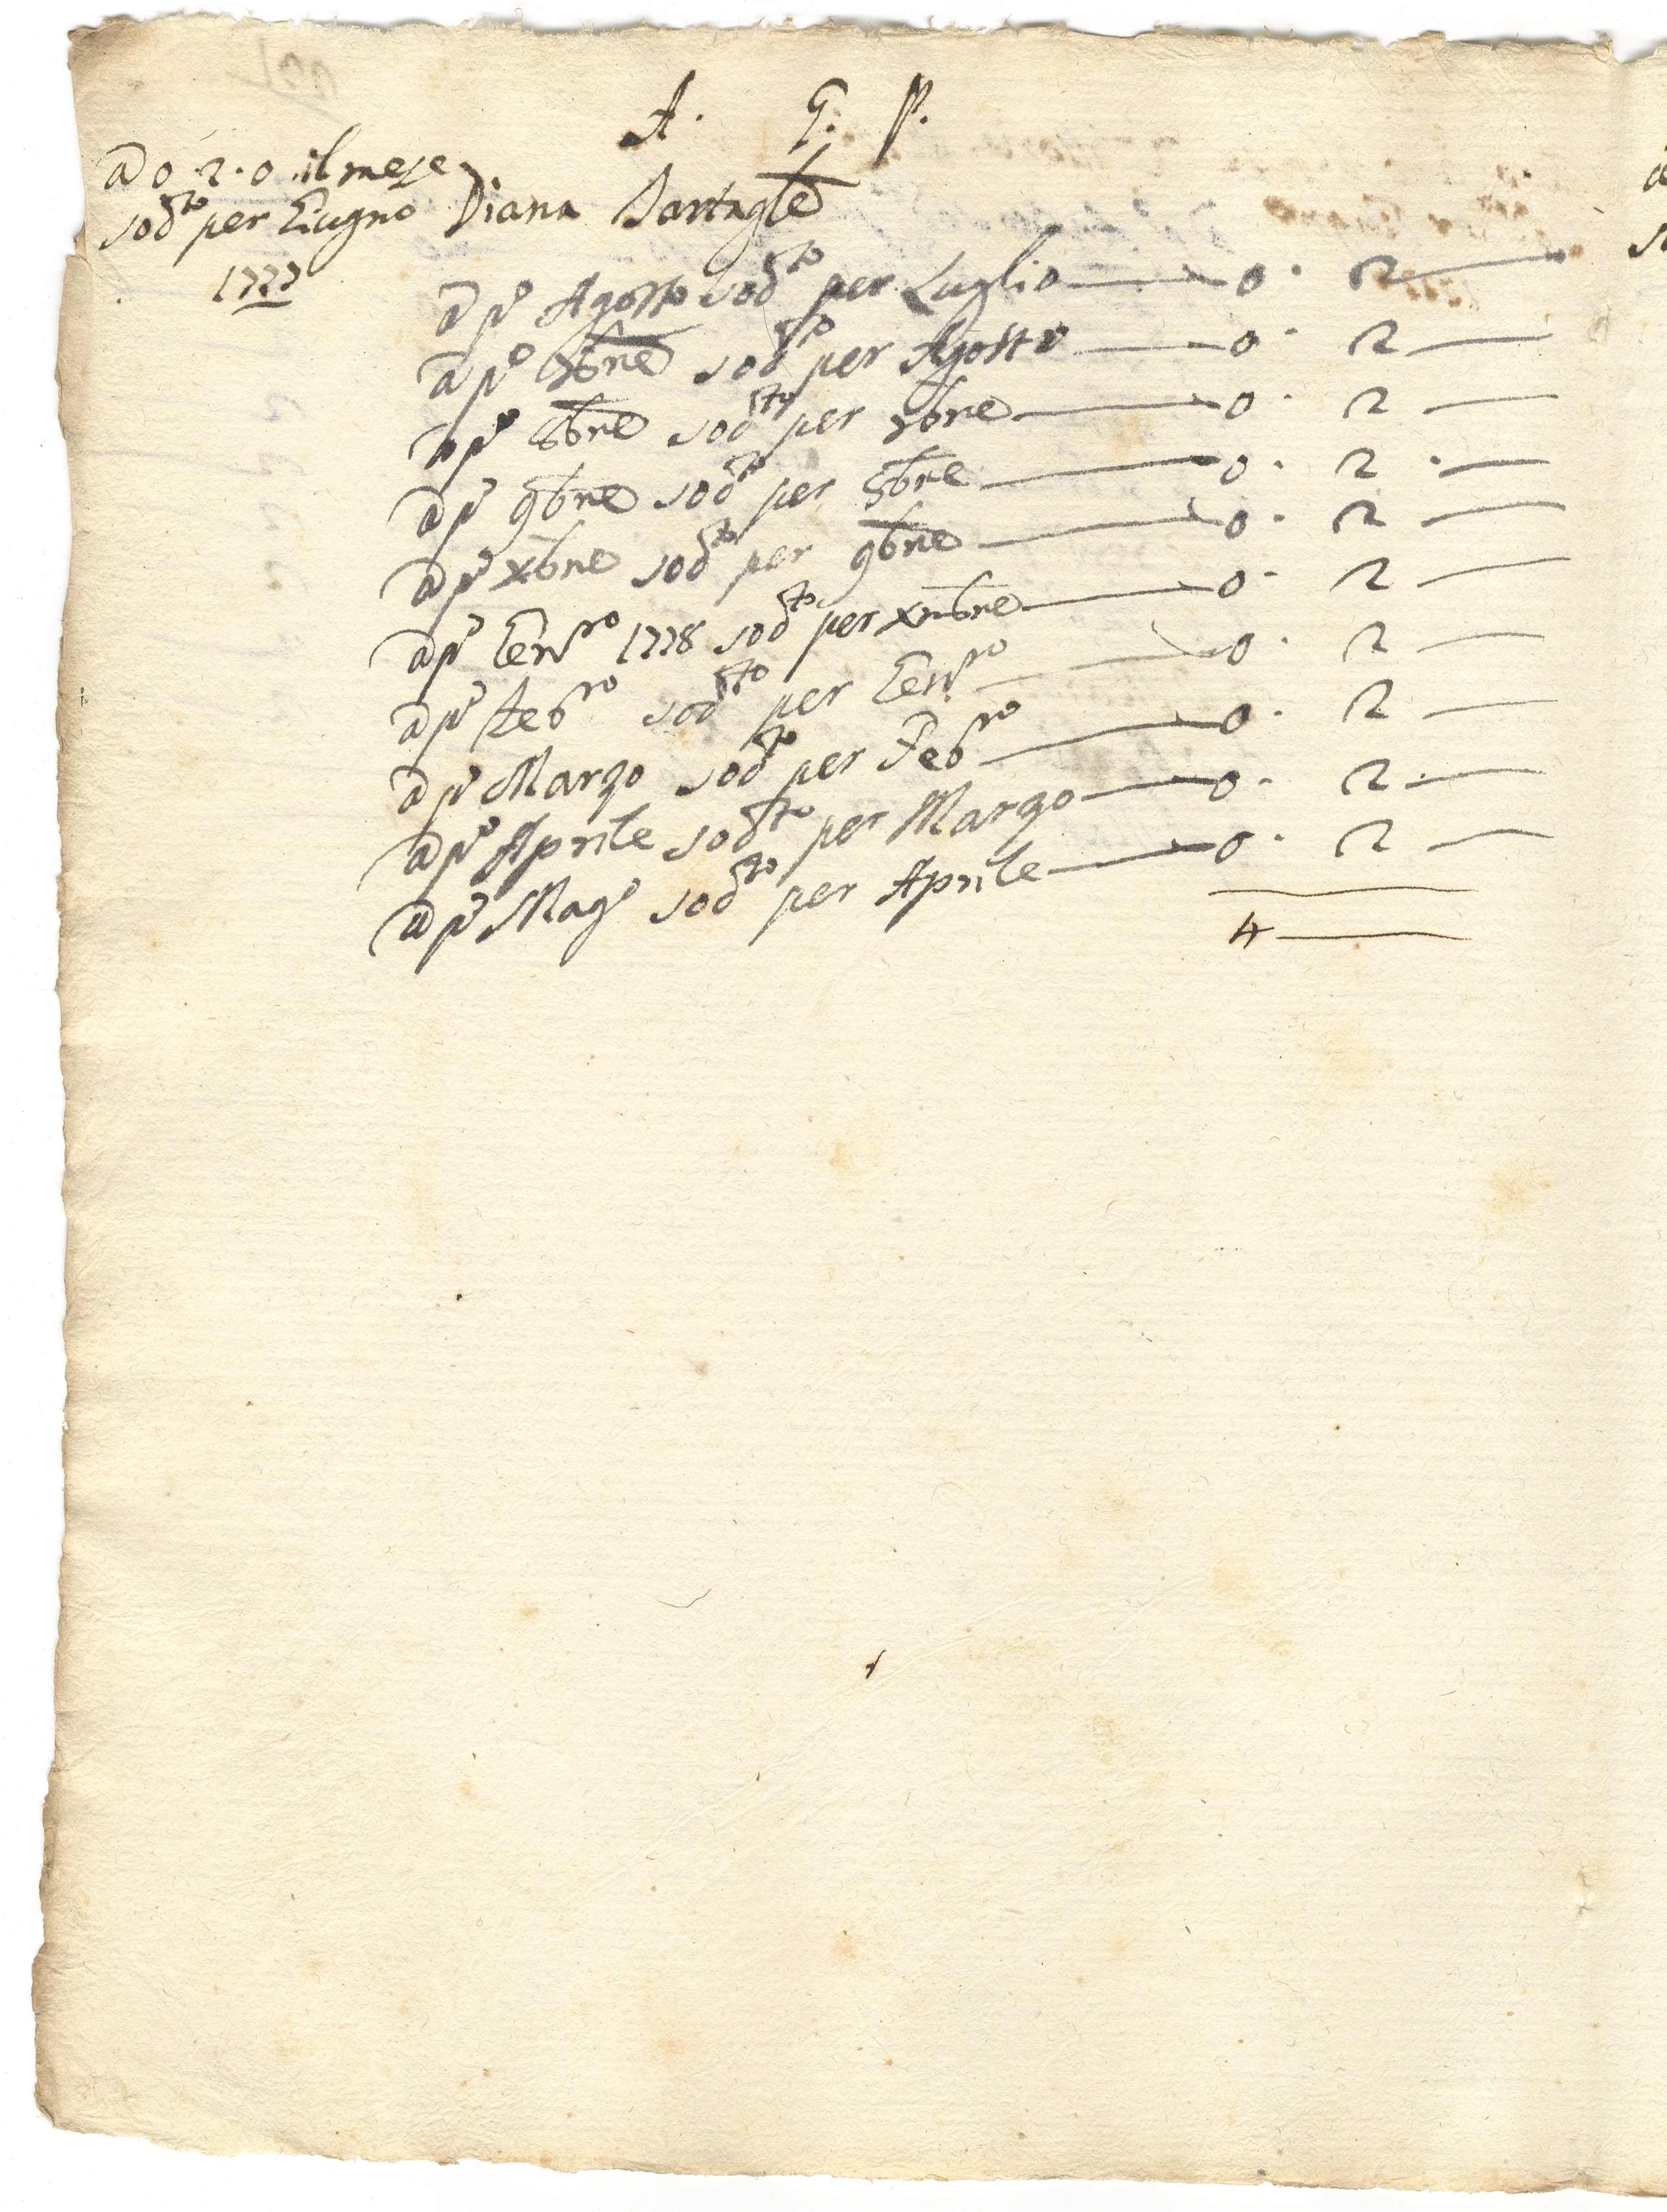 A. G. P.
a 0. 2. 0 il mese
sod.to per Giugno
1777
Diana
a p.o Agosto sod.to per Luglio — 0. 2 —
a p.o 7bre sod.to per Agosto — 0. 2 —
a p.o 8bre sod.to per 7bre — 0. 2 —
a p.o 9bre sod.to per 8bre — 0. 2 . —
a p.o xbre sod.to per 9bre — 0. 2 —
a p.o Gen.ro 1778 sod.to per xmbre — 0. 2 —
a p.o Feb.ro sod.to per Gen.ro — 0. 2 —
a p.o Marzo sod.to per Feb.ro — 0. 2 —
a p.o Aprile sod.to per Marzo — 0. 2. —
a p.o Mag.o sod.to per Aprile — 0. 2 —
4 —